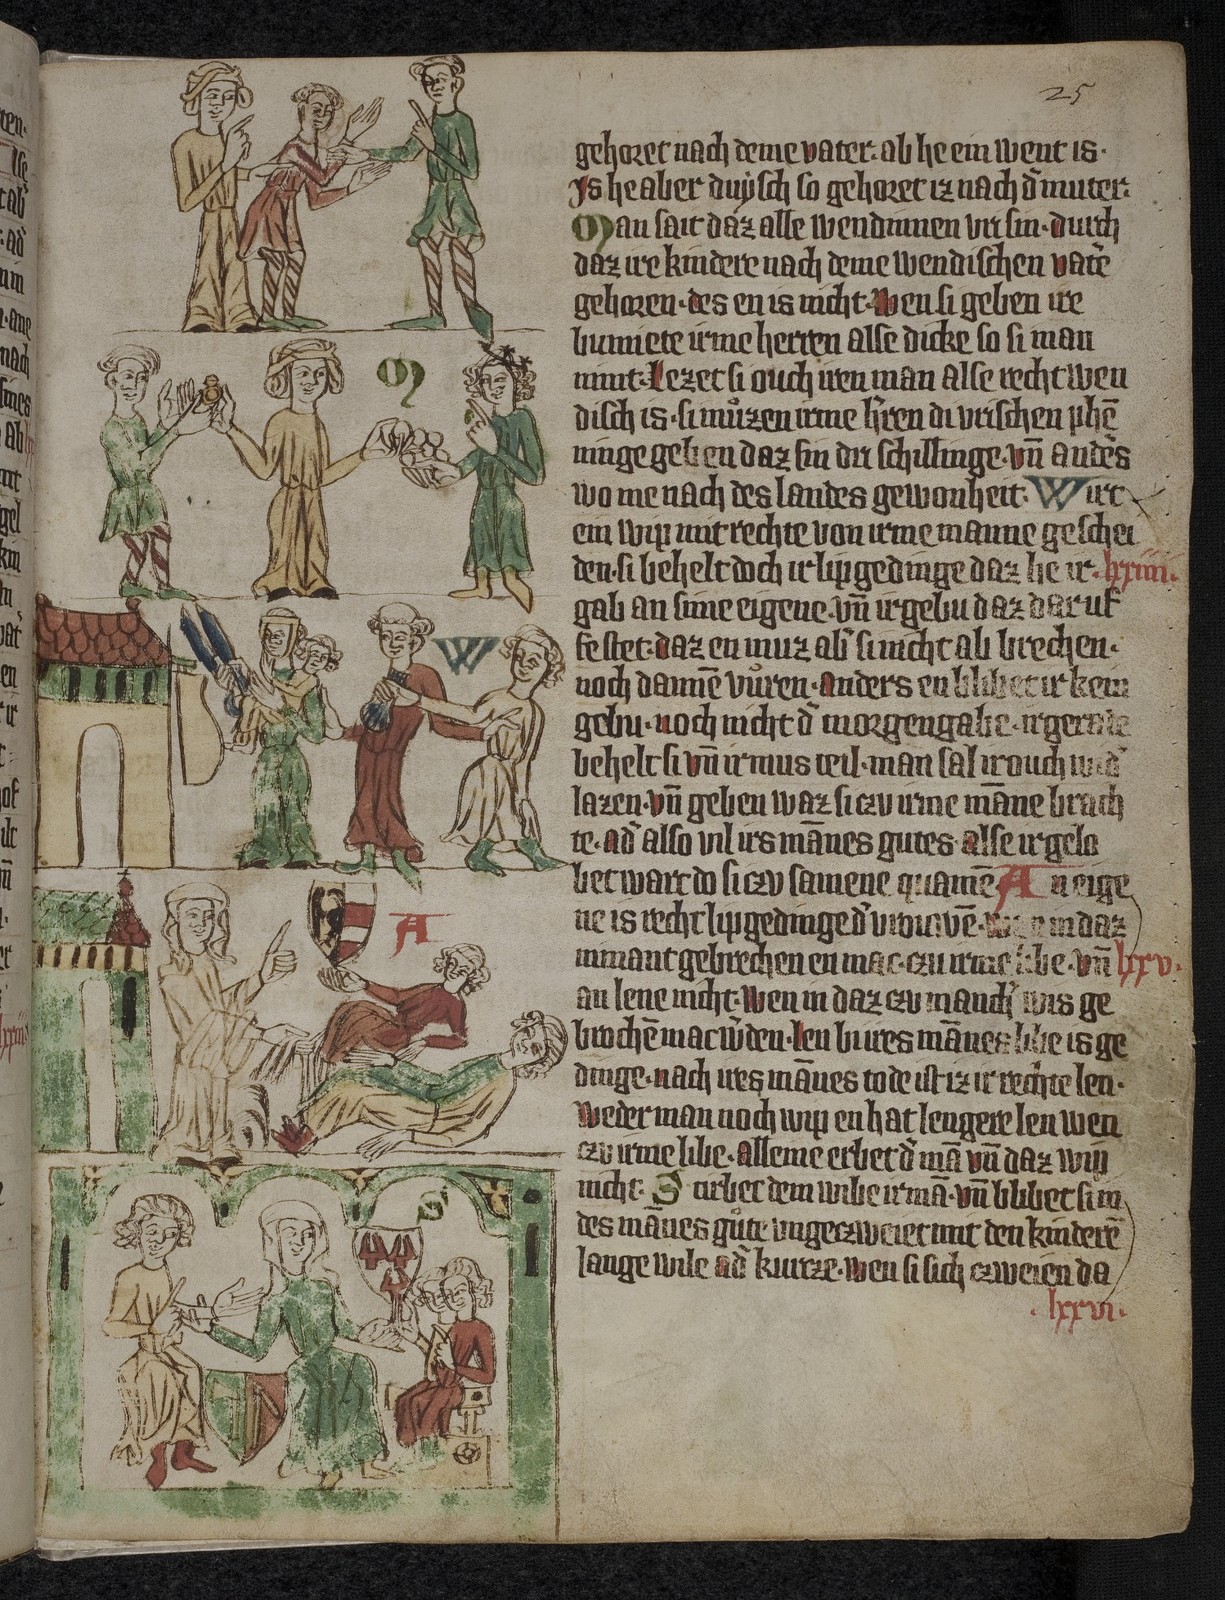 25
gehoret nach deme vater. ab he ein went is.
Is he aber duysch so gehoret iz nach d̄ muter.
Man sait daz alle wendinnen vri sin. durch
daz ire kindere nach deme wendischen vat̄e
gehoren. des en is nicht. Wen si geben ire
bumiete irme herren alse dicke so si man
nimt. Lezet si ouch iren man alse recht wen
disch is. si muͦzen irme h̄ren di vrischen phē
ninge geben daz sin dri schillinge. vn̄ and̄s
wo me nach des landes gewonheit. Wirt
ein wip mit rechte von irme manne geschei
den. si behelt doch ir lipgedinge daz he ir
.lxxiiii.
gab an sime eigene. vn̄ ir gebu daz dar uf
festet. daz en muz ab̄ si nicht ab brechen.
noch dannē vuͦren. anders en blibet ir kein
gebu. noch nicht d̄ morgengabe. ir gerade
behelt si vn̄ ir mus teil. man sal ir ouch wid̄
lazen. vn̄ geben waz si czu irme māne brach
te. ad̄ also vil irs mānes gutes. alse ir gelo
bet wart do si czu samene quamē An eige
ne is recht lipgedinge d̄ vrouwē. wen in daz
nimant gebrechen en mac. czu irme libe. vn̄
lxxv.
an lene nicht. Wen in daz czu manch̄ wis ge
brochē mac w̄den. Len bi ires mānes libe is ge
dinge. nach ires mānes tode ist iz ir rechte len.
Weder man noch wip en hat lengere len wen
czu irme libe. alleine erbet d̄ mā vn̄ daz wip
nicht. Stirbet dem wibe ir mā. vn̄ blibet si in
des mānes guͦte ungeczweiet mit den kinderē
lange wile ad̄ kurcze. wen si sich czweien da
.lxxvi.
M
W
A
S